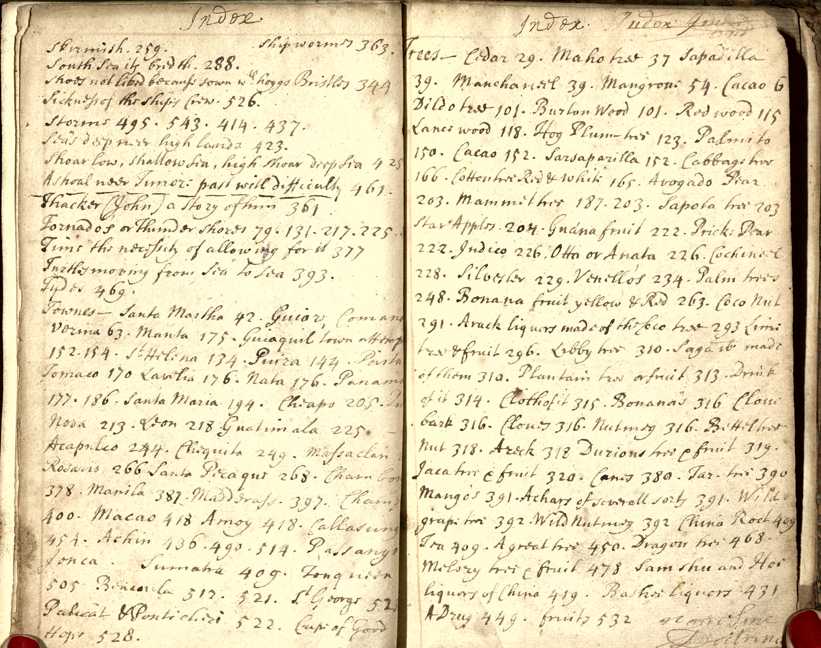 Index
Skirmish. 259. Shipwormes 363.
South Sea its bredth. 288.
Shoes not liked because sown wth hoggs Bristles 344
Sickness of the ships Crew. 526.
Storms 495. 543. 414. 437.
Sea's deep neer high lands 423.
Shoar low, shallow sea, high shoar deep sea 425
A shoal neer Timor: past with difficulty 461.
Thacker (John) a story of him 361.
Tornados or thunder showrs 79. 131. 217. 225.
Time the necessity of allowing for it 377
Turtles moving from Sea to Sea 393.
Tydes 469.
Townes— Santa Martha 42. Comana
Verina 63. Manta 175. Guiaquil town attemp
152. 154. St Helina 134. Puira 144. Paita
Tomaco 170 Lavelia 176. Nata 176. Panama
177. 186. Santa Maria 194. Cheapo 205.
Nova 213. Leon 218 Guatimala 225.
Acapulco 244. Chiquita 249. Massaclan
Rosario 266 Santa Pecaque 268.
378. Manila 387. Maddrass. 397.
400. Macao 418 Amoy 418.
454. Achin 436. 490. 514.
Jonca. Sumatra 409. Tonqueen
505. Bencoula 517. 521. St George 522
Palicat & Pontichiri 522. Cape of Good
Hope 528.
Index.
Trees— Cedar 29. Maho tree 37 Sapadilla
39. Manchaneil 39. Mangrove 54. Cacao 6
Dildo tree 101. Burton Wood 101. Red wood 115
Lance wood 118. Hog Plum tree 123. Palmito
150. Cacao 152. Sarsaparilla 152. Cabbage tree
166. Cotten tree Red & White 165. Avogado Pear
203. Mammet tree 187. 203. Sapota tree 203
Star Apples. 204. Guana fruit 222. Prick: Pear
222. Indico 226. Otta or Anata 226. Cochineel
228. Silvester 229. Venello's 234. Palm trees
248. Bonana fruit yellow & Red 263. Coco Nut
291. Arack liquors made of the Coco tree 293 Lime
tree & fruit 296. Libby tree 310. Sagaw made
of them 310. Plantain tree or fruit 313. Drink
of it 314. Cloth of it 315. Bonana's 316 Clove
bark 316. Cloves 316. Nutmeg 316. Bettel tree
Nut 318. Areck 318 Durions tree & fruit 319.
Jaca tree & fruit 320. Canes 380. Tar. tree 390
Mango's 391. Achars of severall sorts 391. Wild
grape tree 392. Wild Nutmeg 392 China Root 409
Tea 409. A great tree 450. Dragon tree 468.
Melory tree & fruit 478 Sam shu and Hoc
liquors of China 419. Bashee liquors 431
A Drug 449. fruits 532